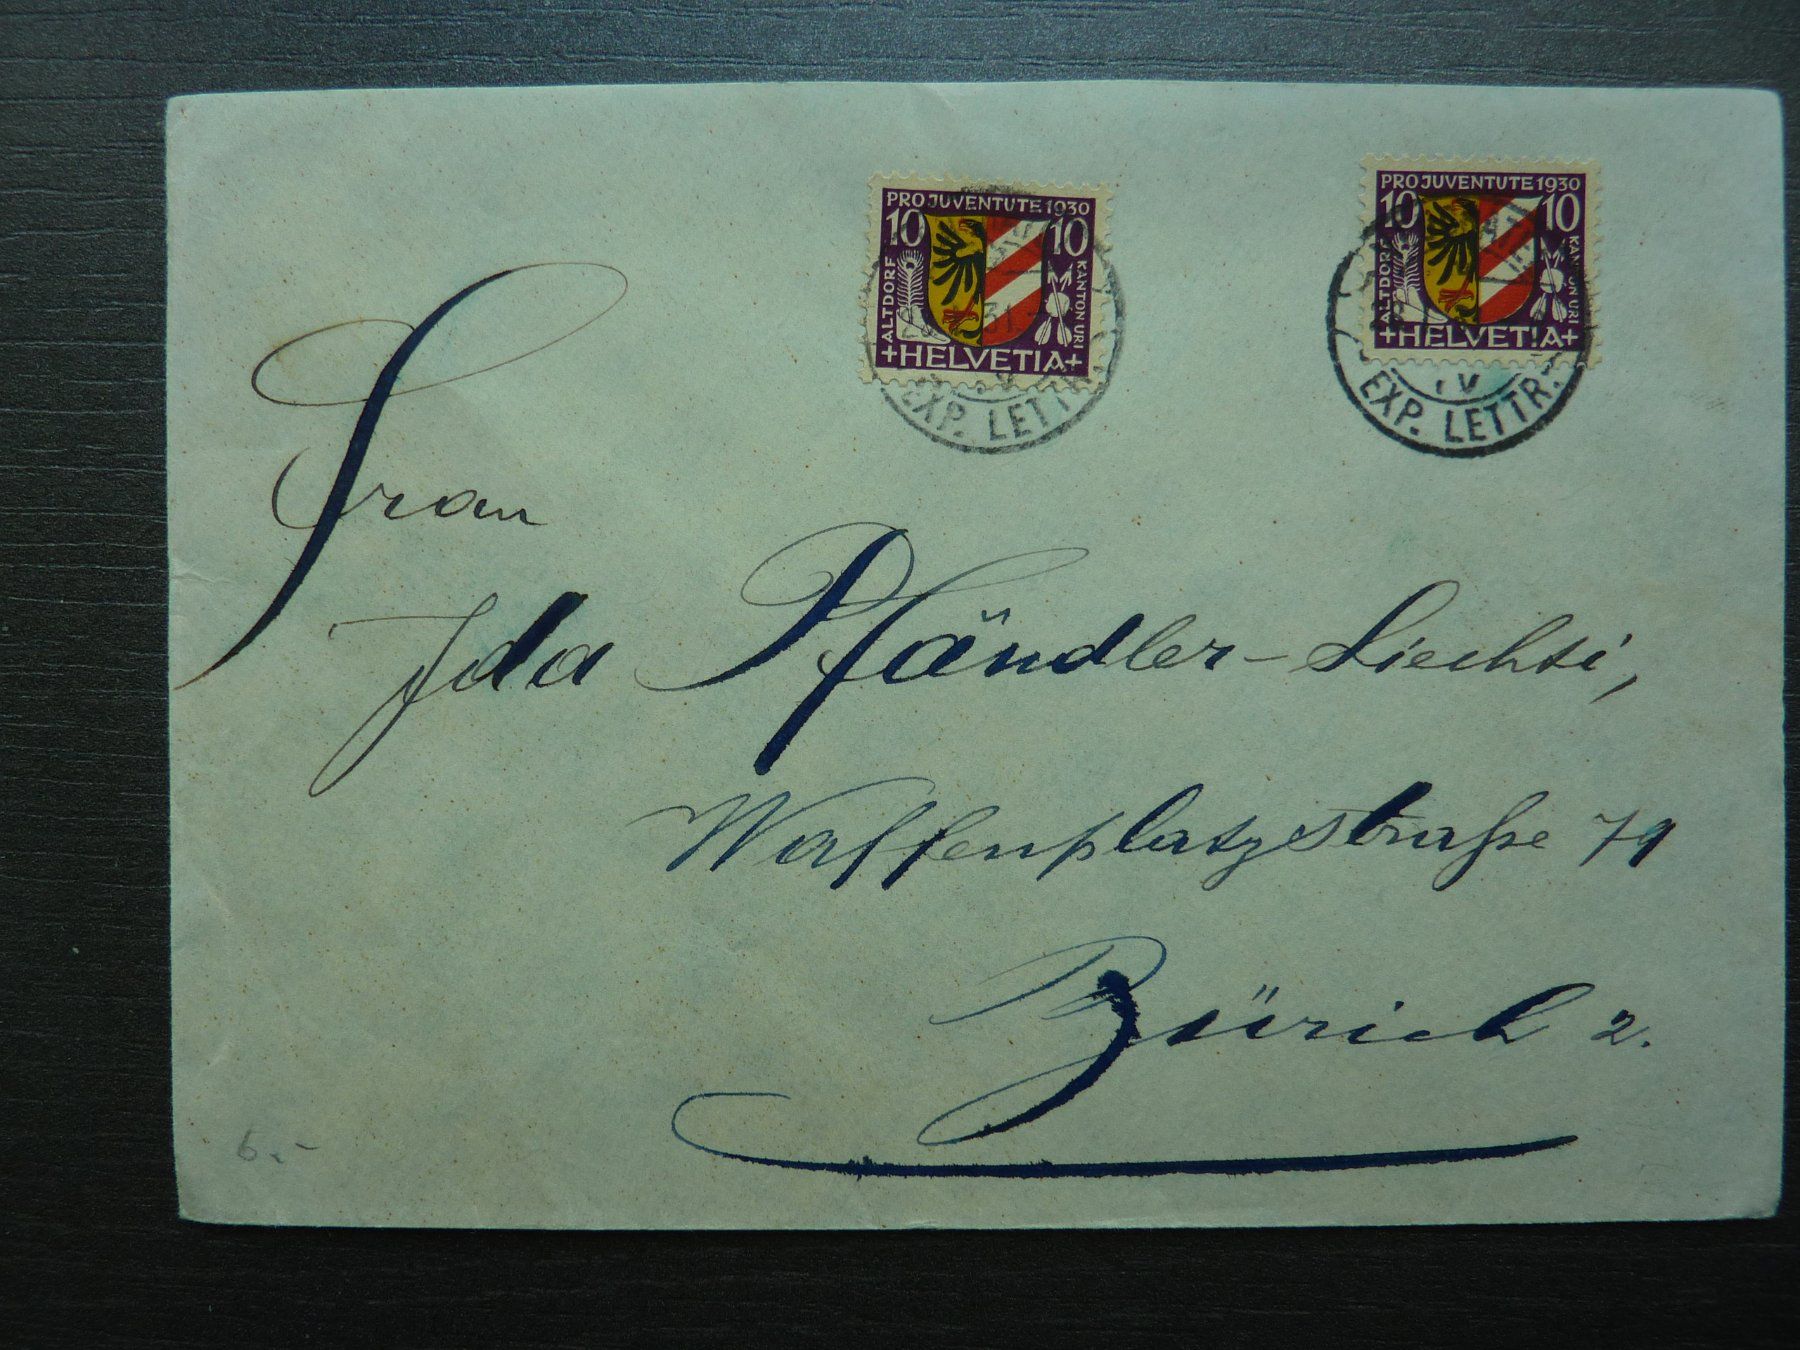 PRO JUVENTUTE 1930
10 10
ALTDORF
KANTON URI
+HELVETIA+
EXP. LETTR.
PRO JUVENTUTE 1930
10 10
ALTDORF
KANTON URI
+HELVETIA+
IV
EXP. LETTR.
Frau
Ida Pfändler-Liechti,
Waffenplatzstraße 79
Zürich 2.
6.-